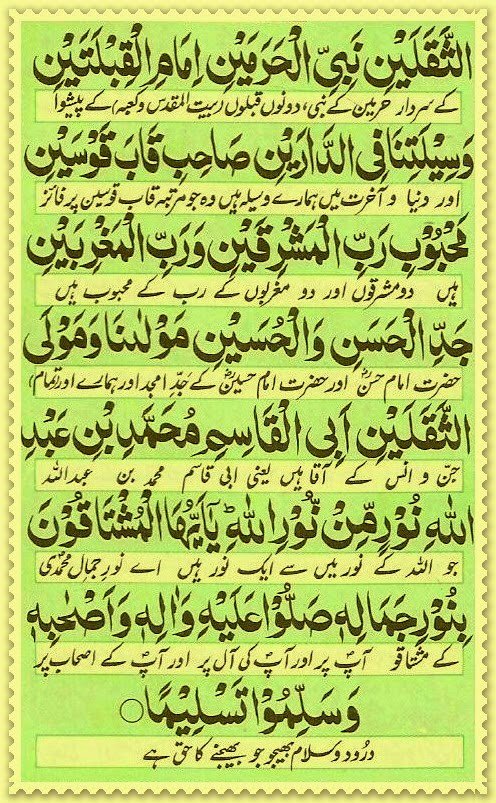 الثَّقَلَيْنِ نَبِيِّ الْحَرَمَيْنِ اِمَامِ الْقِبْلَتَيْنِ
کے سردار حرمین کے نبی، دونوں قبلوں (بیت المقدس وکعبہ) کے پیشوا
وَسِيْلَتِنَا فِي الدَّارَيْنِ صَاحِبِ قَابَ قَوْسَيْنِ
اور دنیا و آخرت میں ہمارے وسیلہ ہیں وہ جو مرتبہ قاب قوسین پر فائز
مَحْبُوْبِ رَبِّ الْمَشْرِقَيْنِ وَرَبِّ الْمَغْرِبَيْنِ
ہیں دو مشرقوں اور دو مغربوں کے رب کے محبوب ہیں
جَدِّ الْحَسَنِ وَالْحُسَيْنِ مَوْلٰىنَا وَمَوْلَى
حضرت امام حسنؓ اور حضرت امام حسینؓ کے جدِّ امجد اور ہمارے اور تمام)
الثَّقَلَيْنِ اَبِي الْقَاسِمِ مُحَمَّدِ بْنِ عَبْدِ
جن و انس کے آقا ہیں یعنی ابی قاسم محمد بن عبداللہ
اللهِ نُوْرٍ مِّنْ نُّوْرِ اللهِ ط يٰٓاَيُّهَا الْمُشْتَاقُوْنَ
جو اللہ کے نور میں سے ایک نور ہیں اے نورِ جمالِ محمدؐی
بِنُوْرِ جَمَالِهٖ صَلُّوْا عَلَيْهِ وَاٰلِهٖ وَاَصْحٰبِهٖ
کے مشتاقو آپؐ پر اور آپؐ کی آل پر اور آپؐ کے اصحاب پر
وَسَلِّمُوْا تَسْلِيْمًا ○
درُود و سلام بھیجو جو بھیجنے کا حق ہے